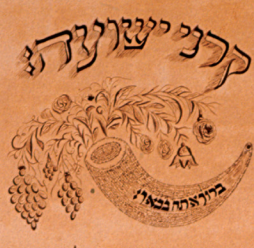 קרני ישועה:
ברוך אתה בבאך: